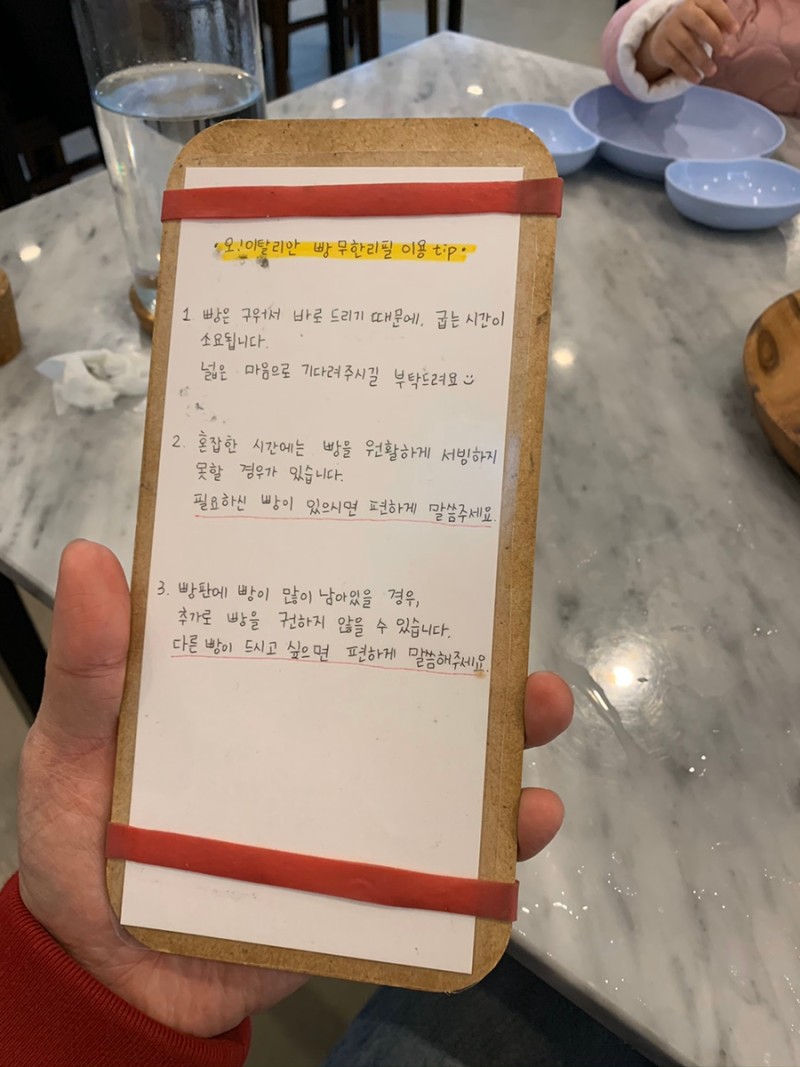 ·오!이탈리안 빵 무한리필 이용 tip·
1 빵은 구워서 바로 드리기 때문에, 굽는 시간이
소요됩니다.
넓은 마음으로 기다려주시길 부탁드려요
2. 혼잡한 시간에는 빵을 원활하게 서빙하지
못할 경우가 있습니다.
필요하신 빵이 있으시면 편하게 말씀주세요.
3. 빵판에 빵이 많이 남아있을 경우,
추가로 빵을 권하지 않을 수 있습니다.
다른 빵이 드시고 싶으면 편하게 말씀해주세요.